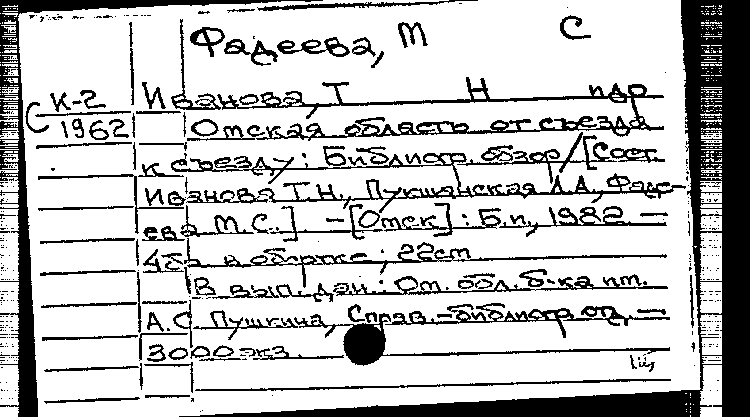 Фадеева, М С
К-2 Иванова, Т Н и др
С 1962 Омская область от съезда
к съезду: Библиогр. обзор / [Сост.
Иванова Т.Н., Пукшанская Л.А., Фаде-
ева М.С.] - [Омск] : Б.и., 1982 -
48с в обертке; 22см
В вып. дан.: Ом. обл. б-ка им.
А.С Пушкина, Справ.-библиогр. отд. -
3000 экз.